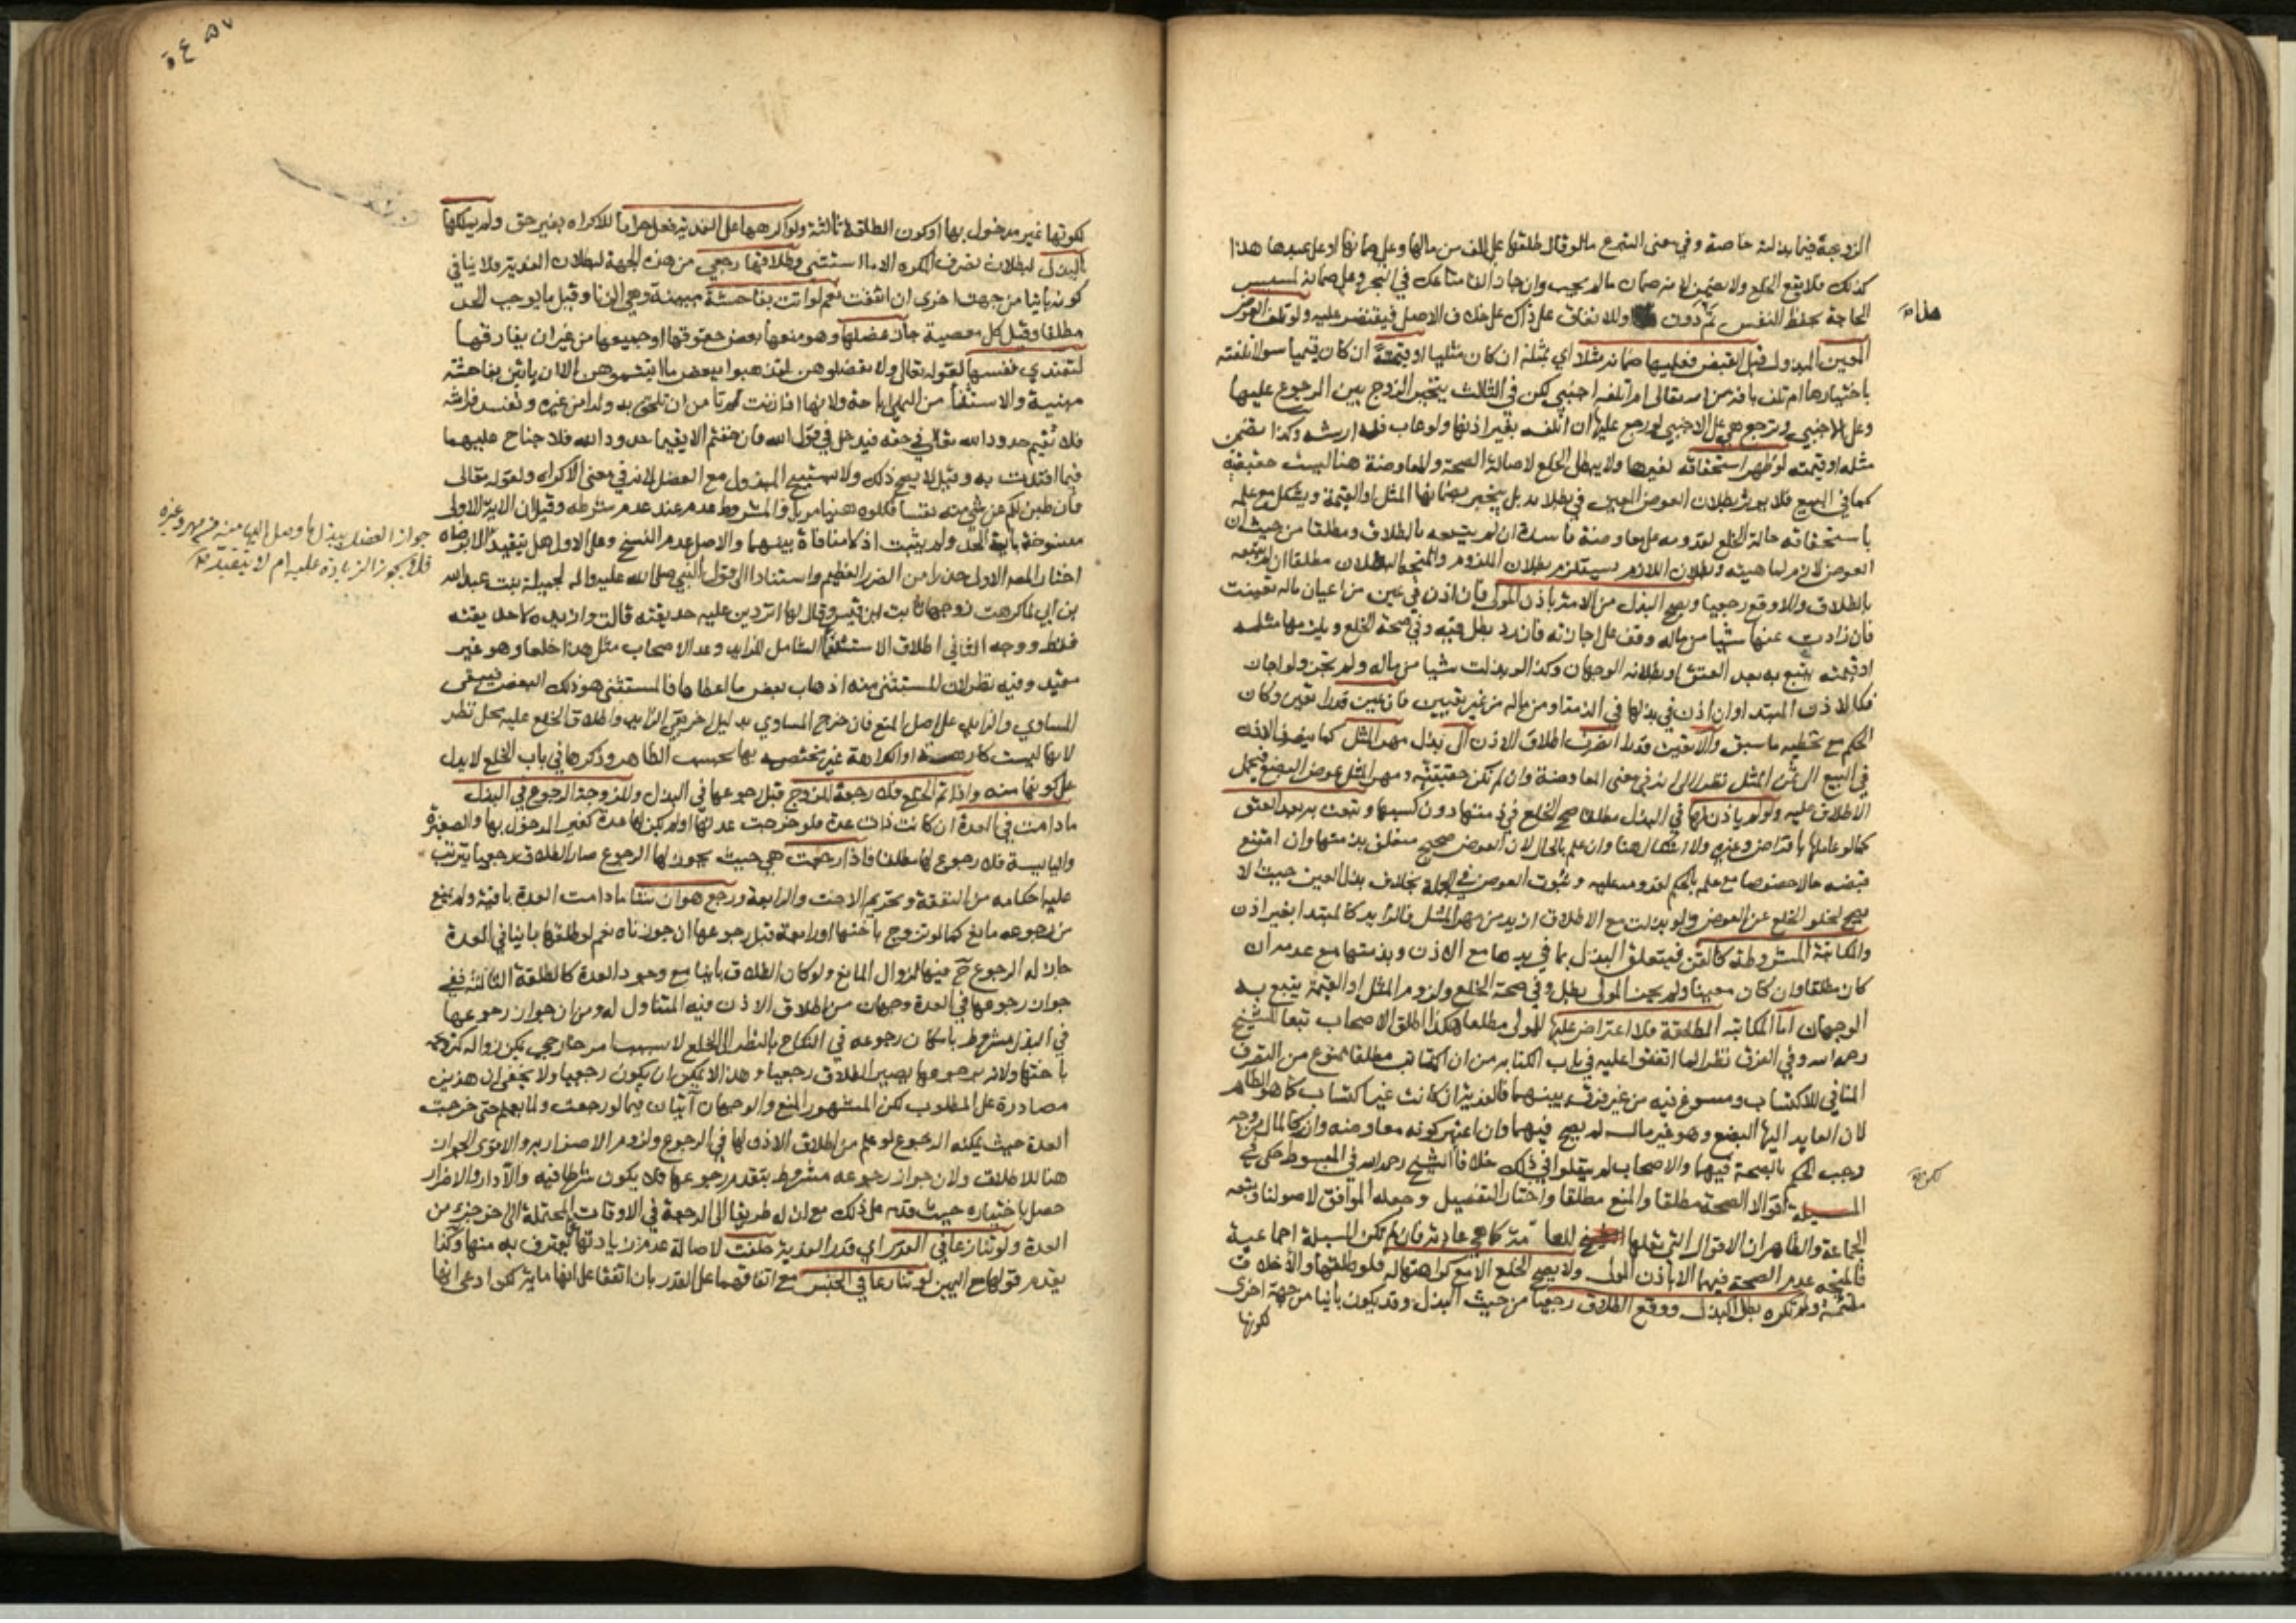 الزوجة فيما بذلته خاصة وفي معنى التبرع ما لو قال طلقها على الف من مالها وعلى ضمانها او على عبدها هذا
كذلك فلا يقع الخلع ولا يضمن لانه ضمان ما لم يجب وان جاز الق متاعك في البحر وعلى ضمانه لمسيس
الحاجة بحفظ النفس ثم دون وللاتفاق على ذاك على خلاف الاصل فيقتصر عليه ولو تلف العوض
هذا
المعين المبذول قبل القبض فعليها ضمانه مثلا اي بمثله ان كان مثليا او قيمة ان كان قيميا سوا اتلفته
باختيارها ام تلف بافة من الله تعالى ام اتلفه اجنبي لكن في الثالث يتخير الزوج بين الرجوع عليها
وعلى الاجنبي وترجع هي على الاجنبي لو رجع عليها ان اتلفه بغير اذنها ولو عاب فله ارشه وكذا تضمن
مثله او قيمته لو ظهر استحقاقه لغيرها ولا يبطل الخلع لاصالة الصحة والمعاوضة هنا ليست حقيقية
كما في البيع فلا يوثر بطلان العوض المعين في بطلانه بل يجبر بضمانها المثل او القيمة ويشكل مع علمه
باستحقاقه حالة الخلع لقدومه على معاوضة فاسدة ان لم يتبعه بالطلاق ومطلقا من حيث ان
العوض لازم لماهيته وبطلان اللازم يستلزم بطلان الملزوم والمتجه البطلان مطلقا ان لم يتبعه
بالطلاق والا وقع رجعيا ويصح البذل من الامة باذن المولى فان اذن في عين من اعيان ماله تعينت
فان زادت عنها شيا من ماله وقف على اجازته فان رد بطل فيه وفي صحة الخلع ويلزمها مثله
او قيمته يتبع به بعد العتق او بطلانه الوجهان وكذا لو بذلت شيا من ماله ولم يجز ولو اجاز
فكالاذن المبتدا وان اذن في بذلها في الذمة او من ماله من غير تعيين فان عين قدرا تعين وكان
الحكم مع تخطيه ما سبق والا يعين قدرا انصرف اطلاق الاذن الى بذل مهر المثل كما ينصرف الاذن
في البيع الى ثمن المثل نظرا الى انه في معنى المعاوضة وان لم تكن حقيقية ومهر المثل عوض البضع فيحمل
الاطلاق عليه ولو لم ياذن لها في البذل مطلقا صح الخلع في ذمتها دون كسبها وتتبع به بعد العتق
كما لو عاملها باقتراض وغيره ولا اشكال هنا وان علم بالحال لان العوض صحيح متعلق بذمتها وان امتنع
قبضه حالا خصوصا مع علمه بالحكم لقدومه عليه وثبوت العوض في الجملة بخلاف بذل العين حيث لا
يصح لخلو الخلع عن العوض ولو بذلت مع الاطلاق ازيد من مهر المثل فالزايد كالمبتدا بغير اذن
والمكاتبة المشروطة كالقن فيتعلق البذل بما في يدها مع الاذن وبذمتها مع عدمه ان
كان مطلقا وان كان معينا ولم يجز المولى بطل وفي صحة الخلع ولزوم المثل او القيمة يتبع به
الوجهان اما المكاتبة المطلقة فلا اعتراض عليها للمولى مطلقا هكذا اطلق الاصحاب تبعا للشيخ
رحمه الله وفي الفرق نظر لما اتفقوا عليه في باب الكتابة من ان المكاتب مطلقا ممنوع من التصرف
المنافي للاكتساب ومسوغ فيه من غير فرق بينهما فالفدية ان كانت غير اكتساب كما هو الظاهر
لان العايد اليها البضع وهو غير مال لم يصح فيهما وان اعتبر كونه معاوضة وانه كالمال من وجه
وجب الحكم بالصحة فيهما والاصحاب لم ينقلوا في ذلك خلافا لكن الشيخ رحمه الله في المبسوط حكى في
لكن
المسيلة اقوالا الصحة مطلقا والمنع مطلقا واختار التفصيل وجعله الموافق لاصولنا وتبعه
الجماعة والظاهر ان الاقوال التي نقلها الشيخ للعامة كما هي عادته فان لم تكن المسيلة اجماعية
فالمتجه عدم الصحة فيهما الا باذن المولى ولا يصح الخلع الا مع كراهتها له فلو طلقها والاخلاق
ملتئمة ولم تكره بطل البذل ووقع الطلاق رجعيا من حيث البذل وقد يكون باينا من جهة اخرى
لكونها
لكونها غير مدخول بها او كون الطلقة ثالثة ولو اكرهها على الفدية فعل حراما للاكراه بغير حق ولم يملكها
بالبذل لبطلان تصرف المكره الا ما استثنى وطلاقها رجعي من هذه الجهة لبطلان الفدية فلا ينافي
كونه باينا من جهة اخرى ان اتفقت نعم لو اتت بفاحشة مبينة وهي الزنا وقيل ما يوجب الحد
مطلقا وقيل كل معصية جاز عضلها وهو منعها بعض حقوقها او جميعها من غير ان يفارقها
لتفتدي نفسها لقوله تعالى ولا تعضلوهن لتذهبوا ببعض ما اتيتموهن الا ان ياتين بفاحشة
مبينة والاستثنا من النهي اباحة ولانها اذا زنت لم يامن ان تلحق به ولدا من غيره وتفسد فراشه
فلا تقيم حدود الله تعالى في حقه فيدخل في قول الله فان خفتم الا يقيما حدود الله فلا جناح عليهما
فيما افتدت به وقيل لا يصح ذلك ولا يستبيح المبذول مع العضل لانه في معنى الاكراه ولقوله تعالى
فان طبن لكم عن شيء منه نفسا فكلوه هنيا مريا والمشروط عدم عند عدم شرطه وقيل ان الاية الاولى
منسوخة باية الحد ولم يثبت اذ لا منافاة بينهما والاصل عدم النسخ وعلى الاول هل يتقيد
جواز العضل ببذل ما وصل اليها منه من مهر وغيره
فلا يجوز الزيادة عليه ام لا يتقيد
اختار المصـ الاول حذرا من الضرر العظيم واستنادا الى قول النبي صلى الله عليه واله لجميلة بنت عبد الله
بن ابي لما كرهت زوجها ثابت ابن قيس وقال لها اتردين عليه حديقته قالت وازيده لا حديقته
فقط ووجه الثاني اطلاق الاستثنا الشامل للزايد وعد الاصحاب مثل هذا خلعا وهو غير
مقيد وفيه نظر لان المستثنى منه اذهاب بعض ما اعطاها فالمستثنى هو ذلك البعض فيبقى
المساوي والزايد على اصل المنع فان خرج المساوي بدليل اخر بقي الزايد واطلاق الخلع عليه محل نظر
لانها ليست كارهة او الكراهة غير مختصة بها بحسب الظاهر وذكرها في باب الخلع لا يدل
على كونها منه واذا تم الخلع فلا رجعة للزوج قبل رجوعها في البذل وللزوجة الرجوع في البذل
ما دامت في العدة ان كانت ذات عدة فلو خرجت عدتها او لم يكن لها عدة كغير المدخول بها والصغيرة
واليايسة فلا رجوع لها مطلقا فاذا رجعت هي حيث يجوز لها الرجوع صار الطلاق رجعيا يترتب
عليه احكامه من النفقة وتحريم الاخت والرابعة ورجع هو ان شا ما دامت العدة باقية ولم يمنع
من رجوعه مانع كما لو تزوج باختها او رابعة قبل رجوعها ان جوزناه نعم لو طلقها باينا في العدة
جاز له الرجوع ح فيها لزوال المانع ولو كان الطلاق باينا مع وجود العدة كالطلقة الثالثة ففي
جواز رجوعها في العدة وجهان من اطلاق الاذن فيه المتناول له ومن ان جواز رجوعها
في البذل مشروط بامكان رجوعه في النكاح بالنظر الى الخلع لا بسبب امر خارجي يمكن زواله كتزوجه
باختها ولانه برجوعها يصير الطلاق رجعيا وهذا لا يمكن ان يكون رجعيا ولا يخفى ان هذين
مصادرة على المطلوب لكن المشهور المنع والوجهان آتيان فيما لو رجعت ولما يعلم حتى خرجت
العدة حيث يمكنه الرجوع لو علم من اطلاق الاذن لها في الرجوع ولزوم الاضرار به والاقوى الجواز
هنا للاطلاق ولان جواز رجوعه مشروط بتقدم رجوعها فلا يكون شرطا فيه والا دار والاضرار
حصل باختياره حيث قدم على ذلك مع ان له طريقا الى الرجعة في الاوقات المحتملة الى اخر جزء من
العدة ولو تنازعا في القدر اي قدر الفدية حلفت لاصالة عدم زيادتها عما يعترف به منها وكذا
يقدم قولها مع اليمين لو تنازعا في الجنس مع اتفاقهما على القدر بان اتفقا على انها ماية لكن ادعى انها